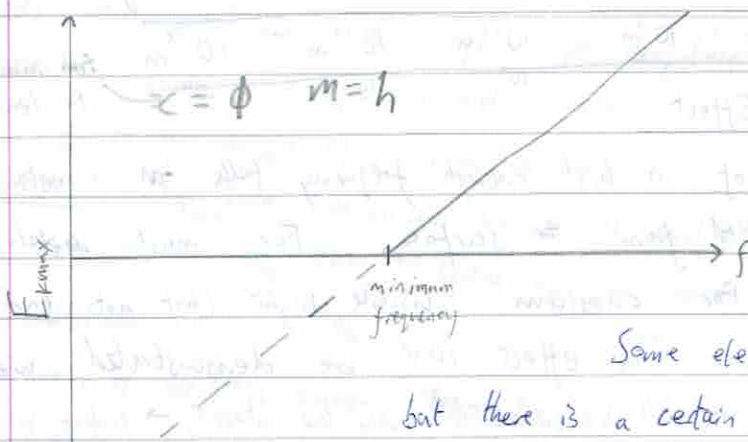 x = ϕ m = h
E kmax
f
minimum
frequency
Some ele
but there is a certain